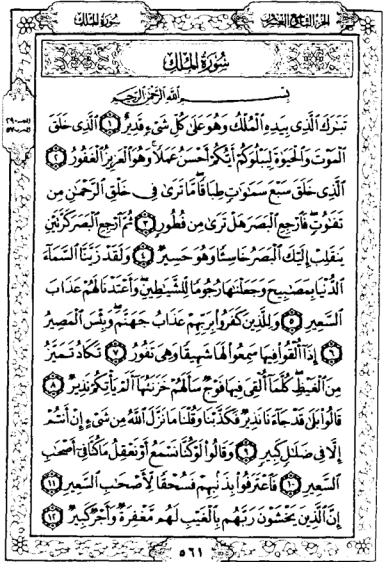 الجزء التاسع والعشرون
سورة الملك
سُورَةُ المُلْكِ
بِسْمِ اللَّهِ الرَّحْمَنِ الرَّحِيمِ
تَبَارَكَ الَّذِي بِيَدِهِ الْمُلْكُ وَهُوَ عَلَى كُلِّ شَيْءٍ قَدِيرٌ ١ الَّذِي خَلَقَ
الْمَوْتَ وَالْحَيَوٰةَ لِيَبْلُوَكُمْ أَيُّكُمْ أَحْسَنُ عَمَلًا وَهُوَ الْعَزِيزُ الْغَفُورُ ٢
الَّذِي خَلَقَ سَبْعَ سَمَاوَاتٍ طِبَاقًا مَّا تَرَىٰ فِي خَلْقِ الرَّحْمَٰنِ مِن
تَفَاوُتٍ فَارْجِعِ الْبَصَرَ هَلْ تَرَىٰ مِن فُطُورٍ ٣ ثُمَّ ارْجِعِ الْبَصَرَ كَرَّتَيْنِ
يَنقَلِبْ إِلَيْكَ الْبَصَرُ خَاسِئًا وَهُوَ حَسِيرٌ ٤ وَلَقَدْ زَيَّنَّا السَّمَاءَ
الدُّنْيَا بِمَصَابِيحَ وَجَعَلْنَاهَا رُجُومًا لِّلشَّيَاطِينِ وَأَعْتَدْنَا لَهُمْ عَذَابَ
السَّعِيرِ ٥ وَلِلَّذِينَ كَفَرُوا بِرَبِّهِمْ عَذَابُ جَهَنَّمَ وَبِئْسَ الْمَصِيرُ
٦ إِذَا أُلْقُوا فِيهَا سَمِعُوا لَهَا شَهِيقًا وَهِيَ تَفُورُ ٧ تَكَادُ تَمَيَّزُ
مِنَ الْغَيْظِ كُلَّمَا أُلْقِيَ فِيهَا فَوْجٌ سَأَلَهُمْ خَزَنَتُهَا أَلَمْ يَأْتِكُمْ نَذِيرٌ ٨
قَالُوا بَلَىٰ قَدْ جَاءَنَا نَذِيرٌ فَكَذَّبْنَا وَقُلْنَا مَا نَزَّلَ اللَّهُ مِن شَيْءٍ إِنْ أَنتُمْ
إِلَّا فِي ضَلَالٍ كَبِيرٍ ٩ وَقَالُوا لَوْ كُنَّا نَسْمَعُ أَوْ نَعْقِلُ مَا كُنَّا فِي أَصْحَابِ
السَّعِيرِ ١٠ فَاعْتَرَفُوا بِذَنبِهِمْ فَسُحْقًا لِّأَصْحَابِ السَّعِيرِ ١١
إِنَّ الَّذِينَ يَخْشَوْنَ رَبَّهُم بِالْغَيْبِ لَهُم مَّغْفِرَةٌ وَأَجْرٌ كَبِيرٌ ١٢
٥٦١